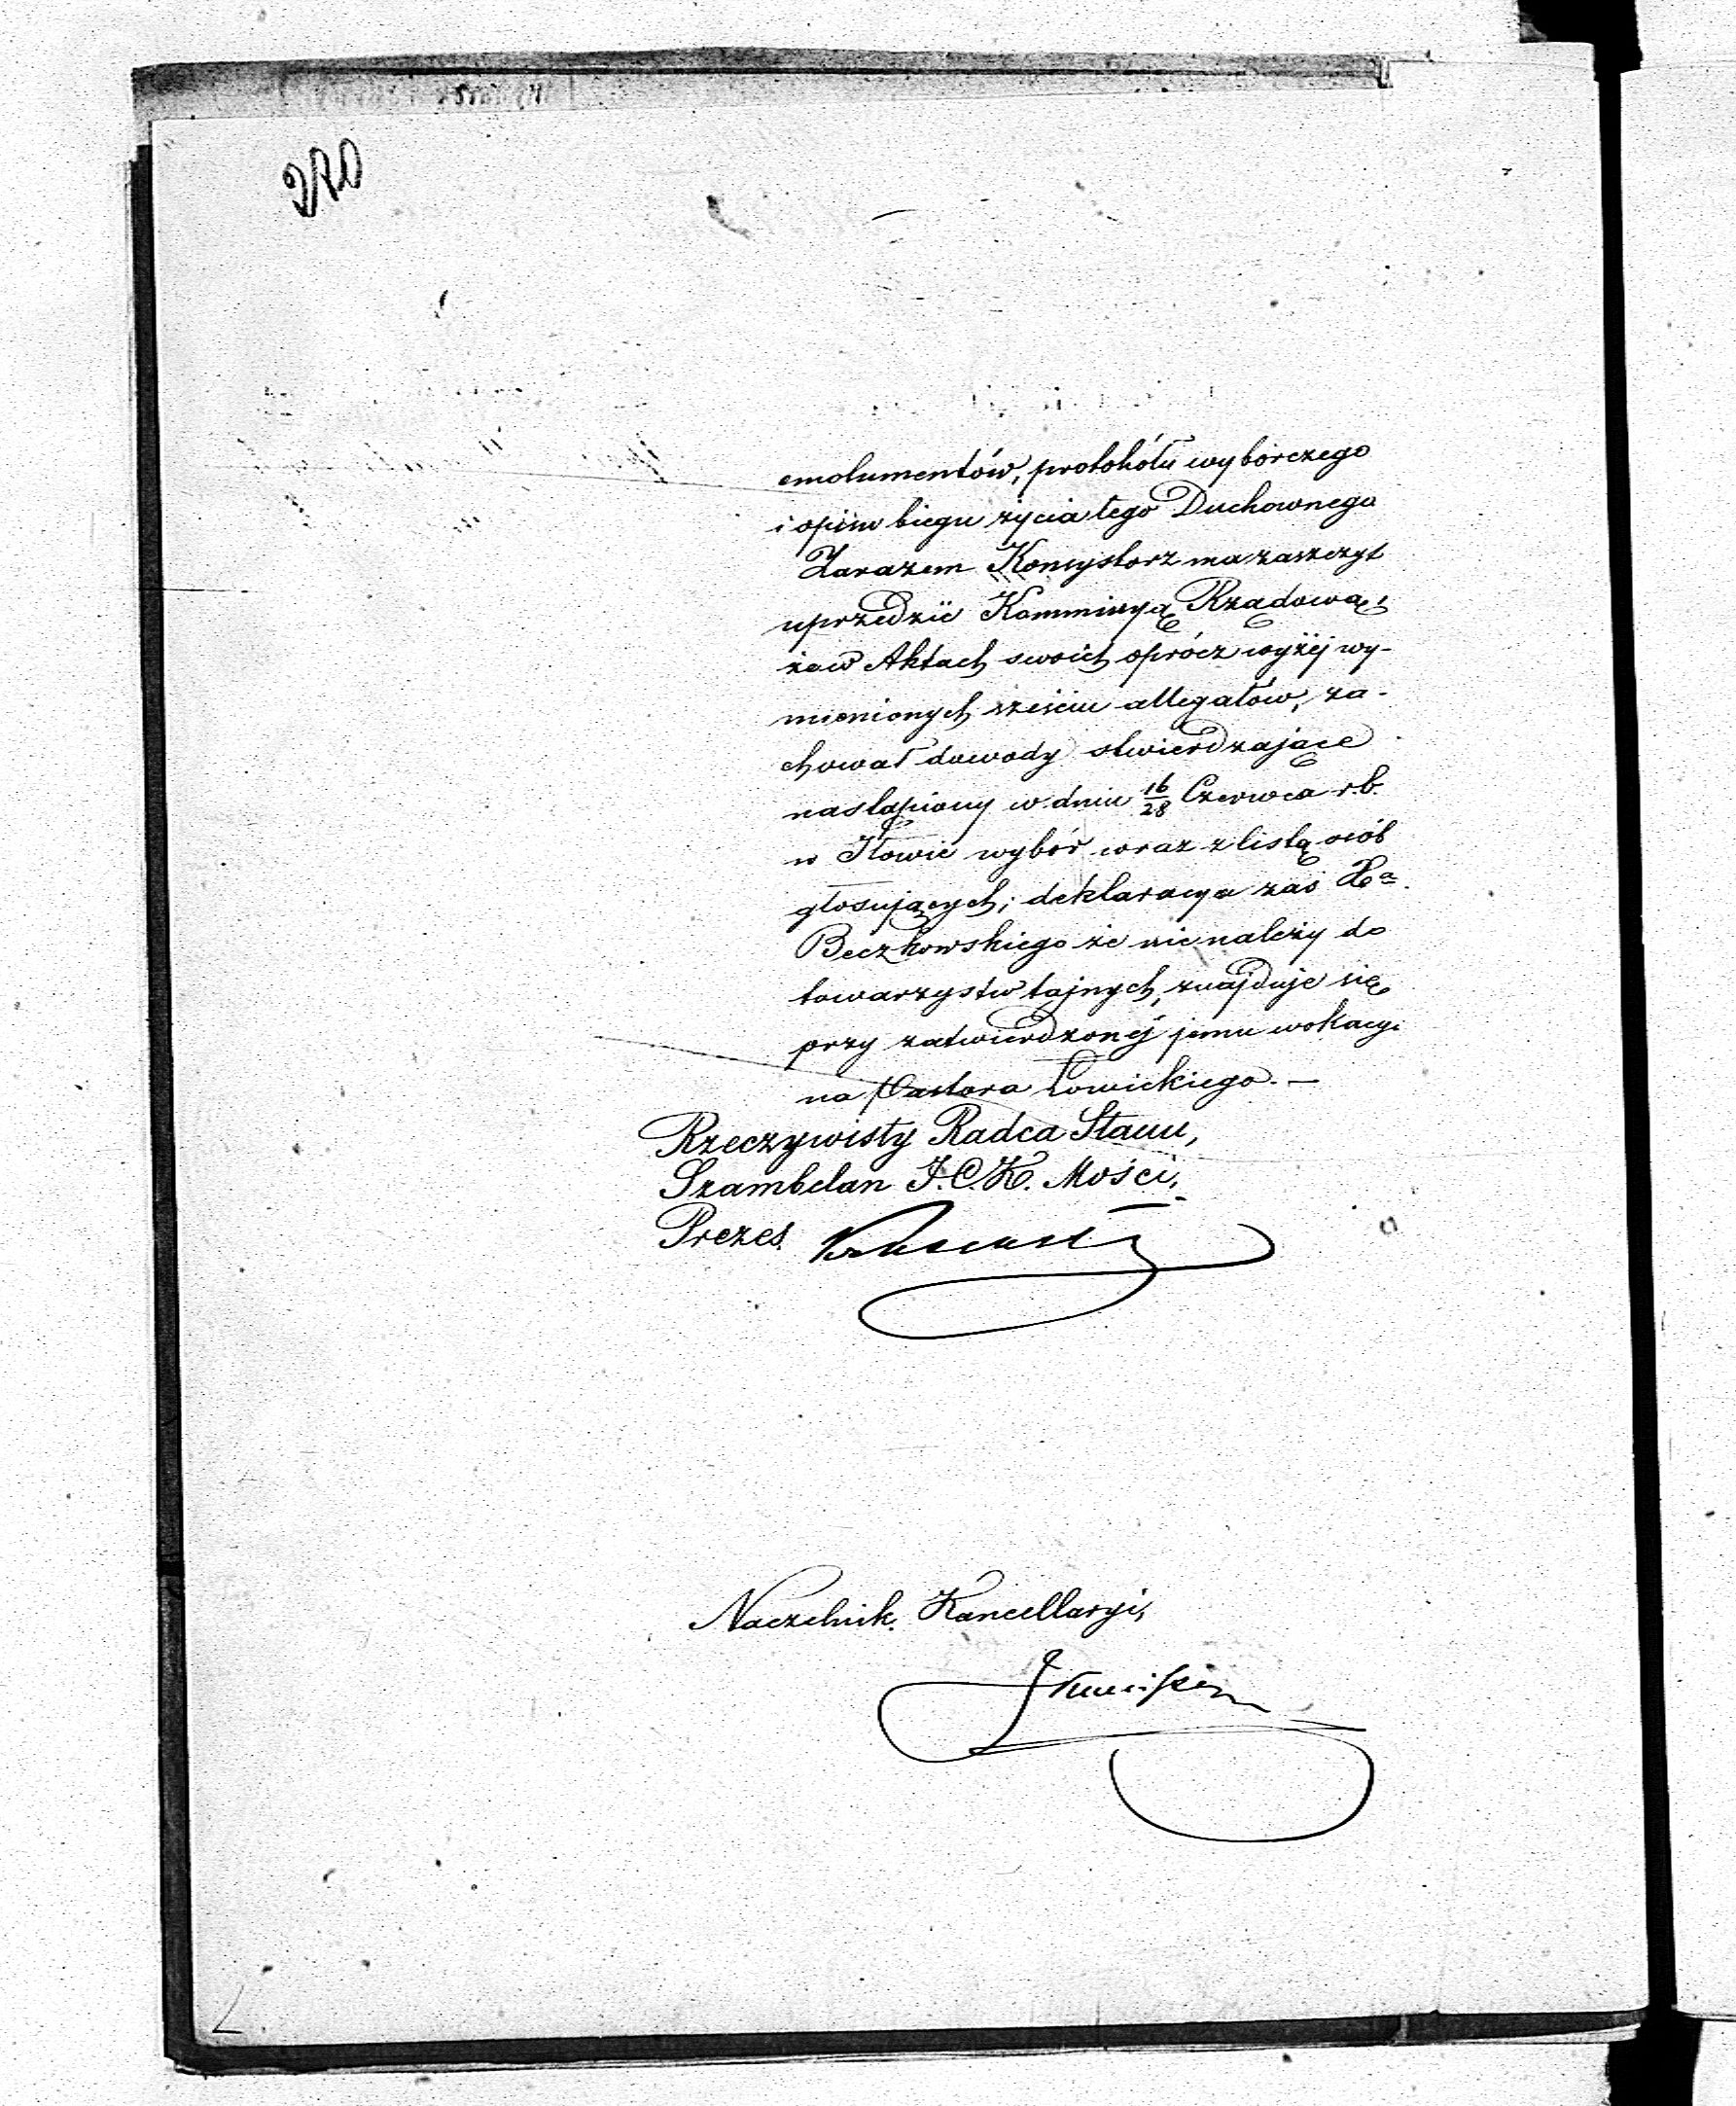 emolumentów, protokółu wyborczego
i opisu biegu życia tego Duchownego
Zarazem Konsystorz ma zaszczyt
uprzedzić Kommissyą Rządową,
że w Aktach swoich oprócz wyżej wy-
mienionych sześciu allegatów, za-
chował dowody stwierdzające
nastąpiony w dniu 16/28 Czerwca r.b.
w Iłowie wybór wraz z listą osób
głosujących; deklaracya zaś Xa
Beczkowskiego że nie należy do
towarzystw tajnych, znajduje się
przy zatwierdzonej jemu wokacyi
na Pastora Łowickiego. —
Rzeczywisty Radca Stanu,
Szambelan J.C.K. Mości,
Prezes
Naczelnik Kancellaryi,